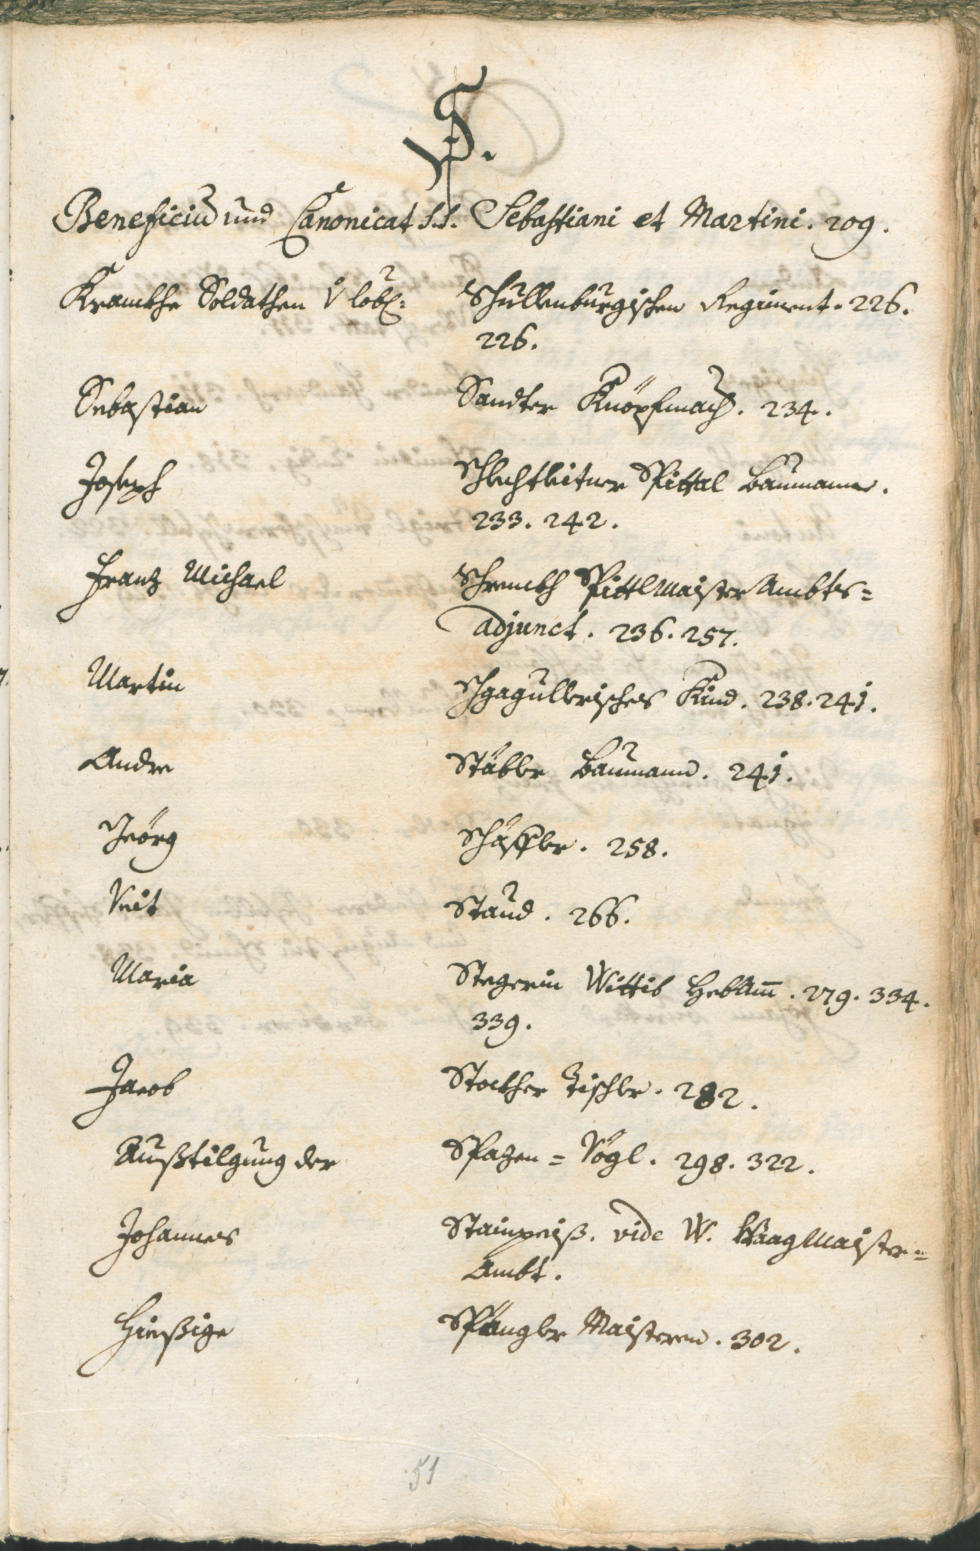 S.
Beneficiu und Canonicat S.S. Sebastiani et Martini. 209.
Krankhe Soldathen v löbl: Schullenburgischen Regiment. 226.
226.
Sebastian Sandter Knöpfmach. 234.
Joseph Schlechtleitner Spittal Baumann.
233. 242.
Frantz Michael Schrenkh SpittlMaister Ambts=
adjunct. 236. 257.
Martin Kind. 238. 241.
Andre Stäbler Baumann. 241.
Jeörg Schäffler. 258.
Veit Staud. 266.
Maria Stegerin Wittib HebAm̄. 279. 334.
339.
Jacob Stockher Tischler. 282.
Außtilgung der Spazen=Vögl. 298. 322.
Johannes Stainpeiß. vide W. WaagMaister=
Ambt.
Hießige Spängler Maistern. 302.
51